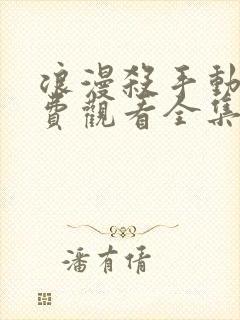 浪漫殺手動
費觀看全集
潘有倩